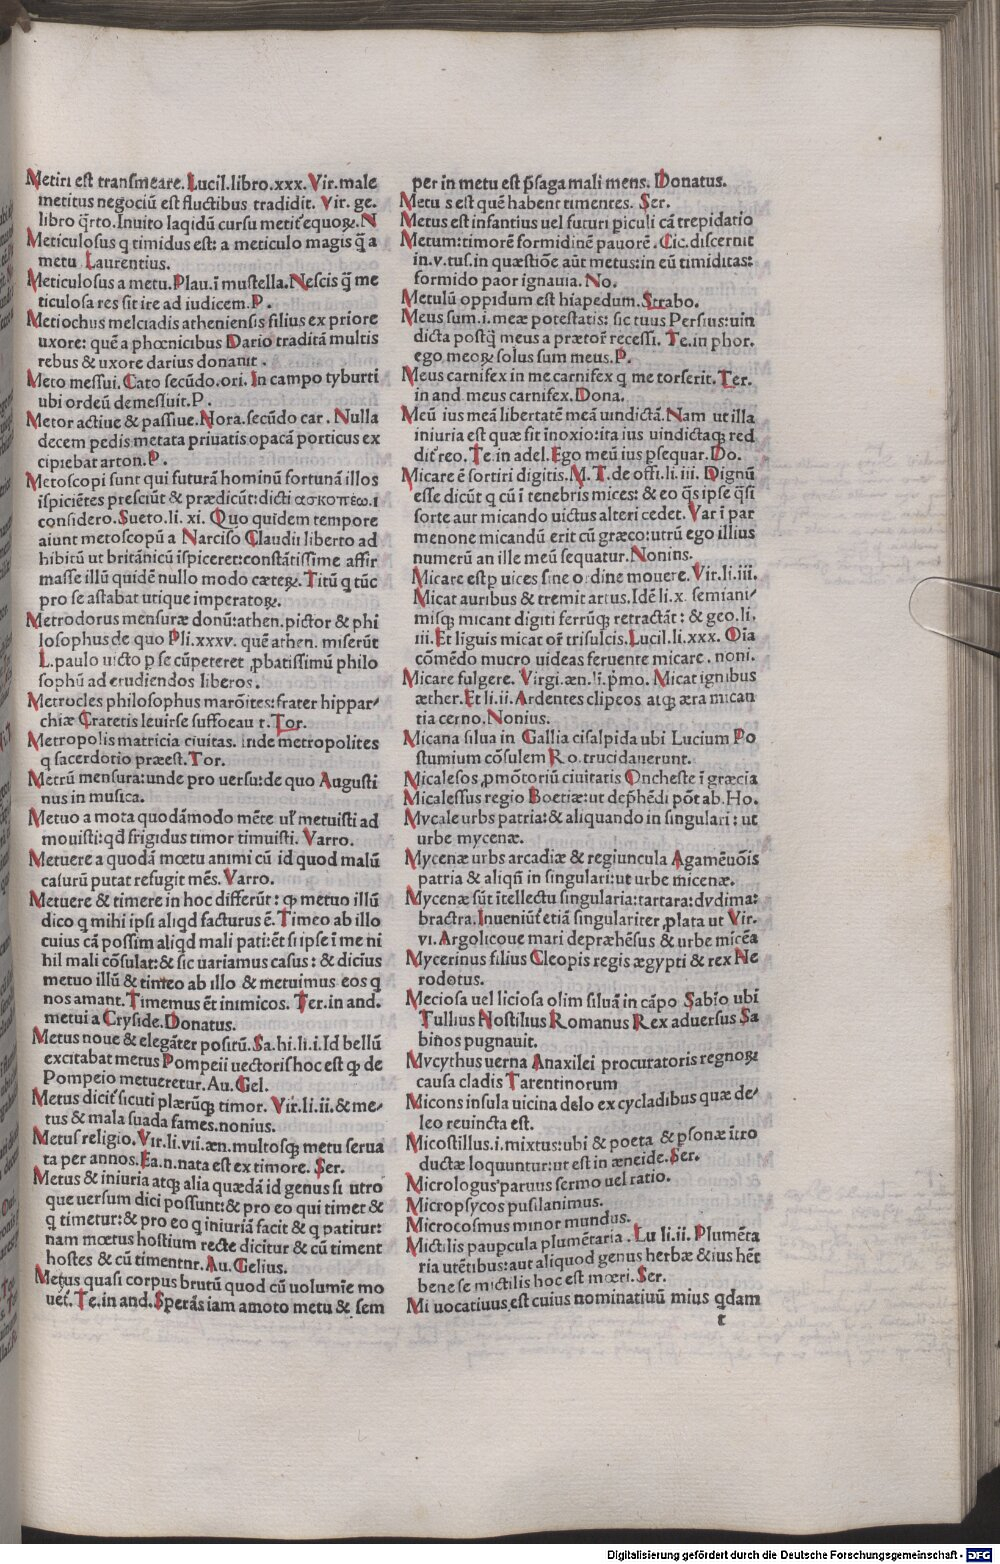 Metiri est transmeare. Lucil. libro. xxx. Vir. male
metitus negociū est fluctibus tradidit. Vir. ge.
libro q̄rto. Inuito laqidū cursu metit̄ equoꝝ. N
Meticulosus q timidus est: a meticulo magis q̄ a
metu Laurentius.
Meticulosus a metu. Plau. ī mustella. Nescis q̄ me
ticulosa res sit ire ad iudicem. P.
Metiochus melciadis atheniensis filius ex priore
uxore: quē a phœnicibus Dario traditā multis
rebus & uxore darius donauit.
Meto messui. Cato secūdo. ori. In campo tyburti
ubi ordeū demessuit. P.
Metor actiue & passiue. Nora. secūdo car. Nulla
decem pedis metata priuatis opacā porticus ex
cipiebat arton. P.
Metoscopi sunt qui futurā hominū fortunā illos
ispiciētes presciūt & prædicūt: dicti ασκοπέω. ı
considero. Sueto. li. xi. Quo quidem tempore
aiunt metoscopū a Narciso Claudii liberto ad
hibitū ut britānicū ispiceret: constātissime affir
masse illū quidē nullo modo cæteꝝ. Titū q tūc
pro se astabat utique imperatoꝝ.
Metrodorus mensuræ donū: athen. pictor & phi
losophus de quo Pli. xxxv. quē athen. miserūt
L. paulo uicto p se cūpeteret ꝓbatissimū philo
sophū ad erudiendos liberos.
Metrocles philosophus marōites: frater hippar⸗
chiæ Cratetis leuirse suffoeau t. Tor.
Metropolis matricia ciuitas. inde metropolites
q sacerdotio præest. Tor.
Metrū mensura: unde pro uersu: de quo Augusti
nus in musica.
Metuo a mota quodāmodo mēte ul' metuisti ad
mouisti: qd̄ frigidus timor timuisti. Varro.
Metuere a quodā mœtu animi cū id quod malū
casurū putat refugit mēs. Varro.
Metuere & timere in hoc differūt: ꝙ metuo illū
dico q mihi ipsi aliqd facturus ē. Timeo ab illo
cuius cā possim aliqd mali pati: ēt si ipse ī me ni
hil mali cōsulat: & sic uariamus casus: & dicius
metuo illū & timeo ab illo & metuimus eos q
nos amant. Timemus ēt inimicos. Ter. in and.
metui a Cryside. Donatus.
Metus noue & elegāter positū. Sa. hi. li. i. Id bellū
excitabat metus Pompeii uectoris hoc est ꝙ de
Pompeio metueretur. Au. Gel.
Metus dicit̄ sicuti plærūq̄ timor. Vir. li. ii. & me⸗
tus & mala suada fames. nonius.
Metus religio. Vir. li. vii. æn. multosq̄ metu serua
ta per annos. Ea. n. nata est ex timore. Ser.
Metus & iniuria atq̄ alia quædā id genus si utro
que uersum dici possunt: & pro eo qui timet &
q timetur: & pro eo q iniuriā facit & q patitur:
nam mœtus hostium recte dicitur & cū timent
hostes & cū timentnr. Au. Gelius.
Metus quasi corpus brutū quod cū uolumīe mo
uet̄. Te. in and. Sperās iam amoto metu & sem
per in metu est p̄saga mali mens. Donatus.
Metu s est quē habent timentes. Ser.
Metus est infantius uel futuri piculi cā trepidatio
Metum: timorē formidinē pauorē. Cic. discernit
in. v. tus. in quæstiōe aūt metus: in eū timiditas:
formido paor ignauia. No.
Metulū oppidum est hiapedum. Strabo.
Meus sum. i. meæ potestatis: sic tuus Persius: uin
dicta postq̄ meus a prætor̄ recessi. Te. in phor.
ego meoꝝ solus sum meus. P.
Meus carnifex in me carnifex q me torserit. Ter.
in and. meus carnifex. Dona.
Meū ius meā libertatē meā uindictā. Nam ut illa
iniuria est quæ fit īnoxio: ita ius uindictaq̄ red
dit̄ reo. Te. in adel. Ego meū ius psequar. Do.
Micare ē sortiri digitis. M. T. de offi. li. iii. Dignū
esse dicūt q cū ī tenebris mices: & eo q̄s ipse q̄si
sorte aur micando uictus alteri cedet. Var ī par
menone micandū erit cū græco: utrū ego illius
numerū an ille meū sequatur. Nonins.
Micare est p uices sine ordine mouere. Vir. li. iii.
Micat auribus & tremit artus. Idē li. x. semiani⸗
misq̄ micant digiti ferrūq̄ retractāt: & geo. li.
iii. Et liguis micat or̄ trisulcis. Lucil. li. xxx. Oia
cōmēdo mucro uideas feruente micare. noni.
Micare fulgere. Virgi. æn. li. p̄mo. Micat ignibus
æther. Et li. ii. Ardentes clipeos atq̄ æra mican
tia cerno. Nonius.
Micana silua in Gallia cisalpida ubi Lucium Po
stumium cōsulem Ro. trucidauerunt.
Micalesos ꝓmōtoriū ciuitatis Oncheste ī græcia
Micalessus regio Boetiæ: ut dep̄hēdi pōt ab. Ho.
Mycale urbs patria: & aliquando in singulari: ut
urbe mycenæ.
Mycenæ urbs arcadiæ & regiuncula Agamēuōis
patria & aliqn̄ in singulari: ut urbe micenæ.
Mycenæ sūt ītellectu singularia: tartara: dvdima:
bractra. Inueniūt̄ etiā singulariter ꝓlata ut Vir.
vi. Argolicoue mari depræhēsus & urbe micēa
Mycerinus filius Cleopis regis ægypti & rex Ne
rodotus.
Meciosa uel liciosa olim siluā in cāpo Sabīo ubi
Tullius Nostilius Romanus Rex aduersus Sa
binos pugnauit.
Mvcythus uerna Anaxilei procuratoris regnoꝝ
causa cladis Tarentinorum
Micons insula uicina delo ex cycladibus quæ de⸗
leo reuincta est.
Micostillus. i. mixtus: ubi & poeta & psonæ ītro
ductæ loquuntur: ut est in æneide. Ser.
Micrologus' paruus sermo uel ratio.
Micropsycos pusilanimus.
Microcosmus minor mundus.
Mictilis paupcula plumētaria. Lu li. ii. Plumēta
ria utētibus: aut aliquod genus herbæ & ius hēt
bene se mictilis hoc est mœri. Ser.
Mi uocatiuus est cuius nominatiuū mius qdam
t
Digitalisierung gefördert durch die Deutsche Forschungsgemeinschaft - DFG